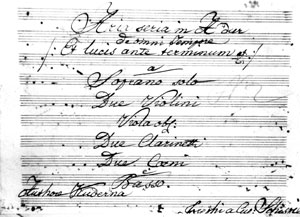 Aria seria in A dur
de omni tempore
/: Te lucis ante terminum :/
a
Soprano solo
Due Violini
Viola obl:
Due Clarinetti
Due Corni
e
Basso.
Authore Kuderna